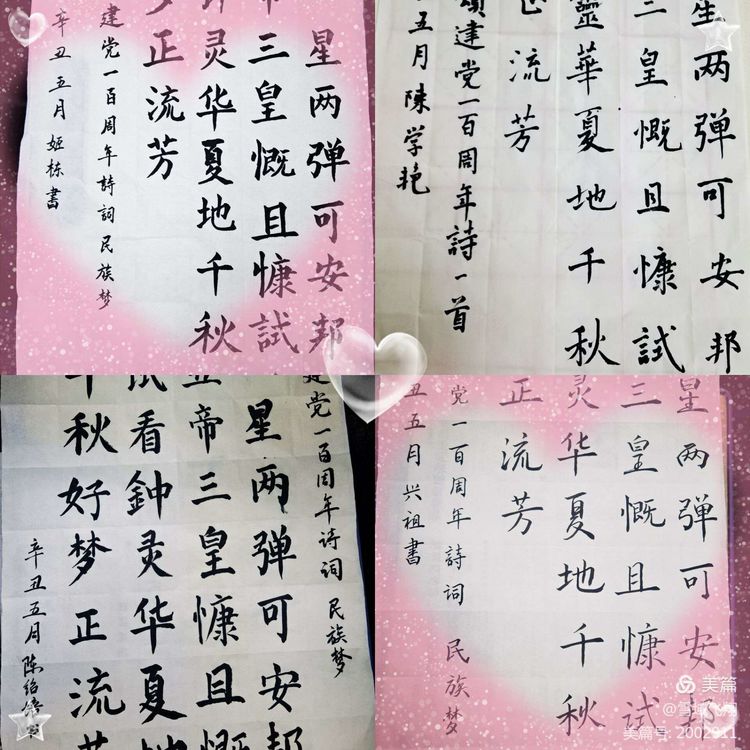 星两弹可安邦
三皇慨且慷試
灵华夏地千秋
正流芳
建党一百周年詩詞民族梦
辛丑五月姬栋書
星两弹可安邦
三皇慨且慷試
靈華夏地千秋
流芳
頌建党一百周年詩一首
五月陳学艳
建党一百周年诗词 民族梦
星两弹可安邦
帝三皇慷且慨
看鈡灵华夏地
千秋好梦正流芳
辛丑五月陈绍
星两弹可安邦
三皇慨且慷試
灵华夏地千秋
正流芳
党一百周年詩詞 民族梦
丑五月兴祖書
美篇
美篇号: 2002911